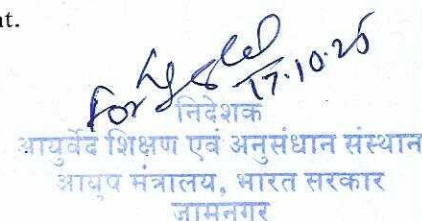 nt.
For
17.10.25
निदेशक
आयुर्वेद शिक्षण एवं अनुसंधान संस्थान
आयुष मंत्रालय, भारत सरकार
जामनगर